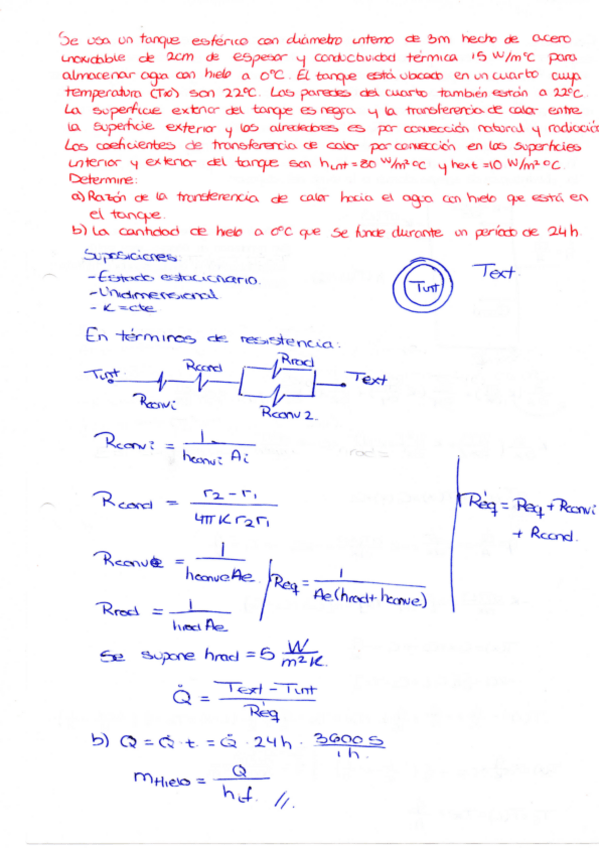 Se usa un tanque esférico con diámetro interno de 3m hecho de acero
inoxidable de 2cm de espesor y conductividad térmica 15 W/m°C para
almacenar agua con hielo a 0°C. El tanque está ubicado en un cuarto cuya
temperatura (T∞) son 22°C. Las paredes del cuarto también están a 22°C
La superficie exterior del tanque es negra y la transferencia de calor entre
la superficie exterior y los alrededores es por convección natural y radiación
Los coeficientes de transferencia de calor por convección en las superficies
interior y exterior del tanque son hint=80 W/m²°C y hext=10 W/m²°C.
Determine:
a) Razón de la transferencia de calor hacia el agua con hielo que está en
el tanque.
b) La cantidad de hielo a 0°C que se funde durante un período de 24h.
Suposiciones
-Estado estacionario.
-Unidimensional
- K=cte
Tint
Text.
En términos de resistencia:
Tint Rconvi Rcond Rrad Rconv2. Text
Rconvi = 1 / hconvi Ai
Rcond = r2-r1 / 4πK r2r1
Réq = Req + Rconvi
+ Rcond.
Rconve = 1 / hconve Ae
Req = 1 / Ae(hrad+hconve)
Rrad = 1 / hrad Ae
Se supone hrad = 5 W / m²K.
Q̇ = Text - Tint / Réq
b) Q = Q̇ · t = Q̇ · 24h · 3600 s / 1h.
mHielo = Q / hif. //.